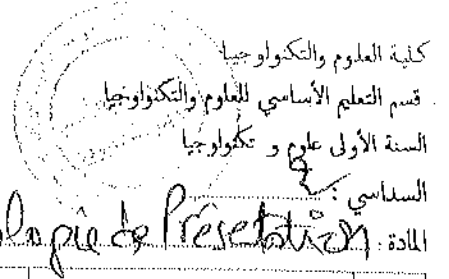 كلية العلوم والتكنولوجيا
قسم التعليم الأساسي للعلوم والتكنولوجيا
السنة الأولى علوم و تكنولوجيا
السداسي :
المادة : de Présetation